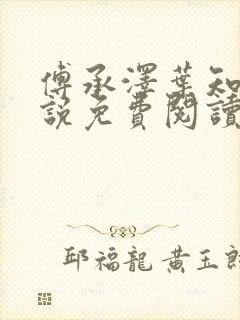 傅承澤葉知
說免費閱讀
邱福龍 黃玉郎